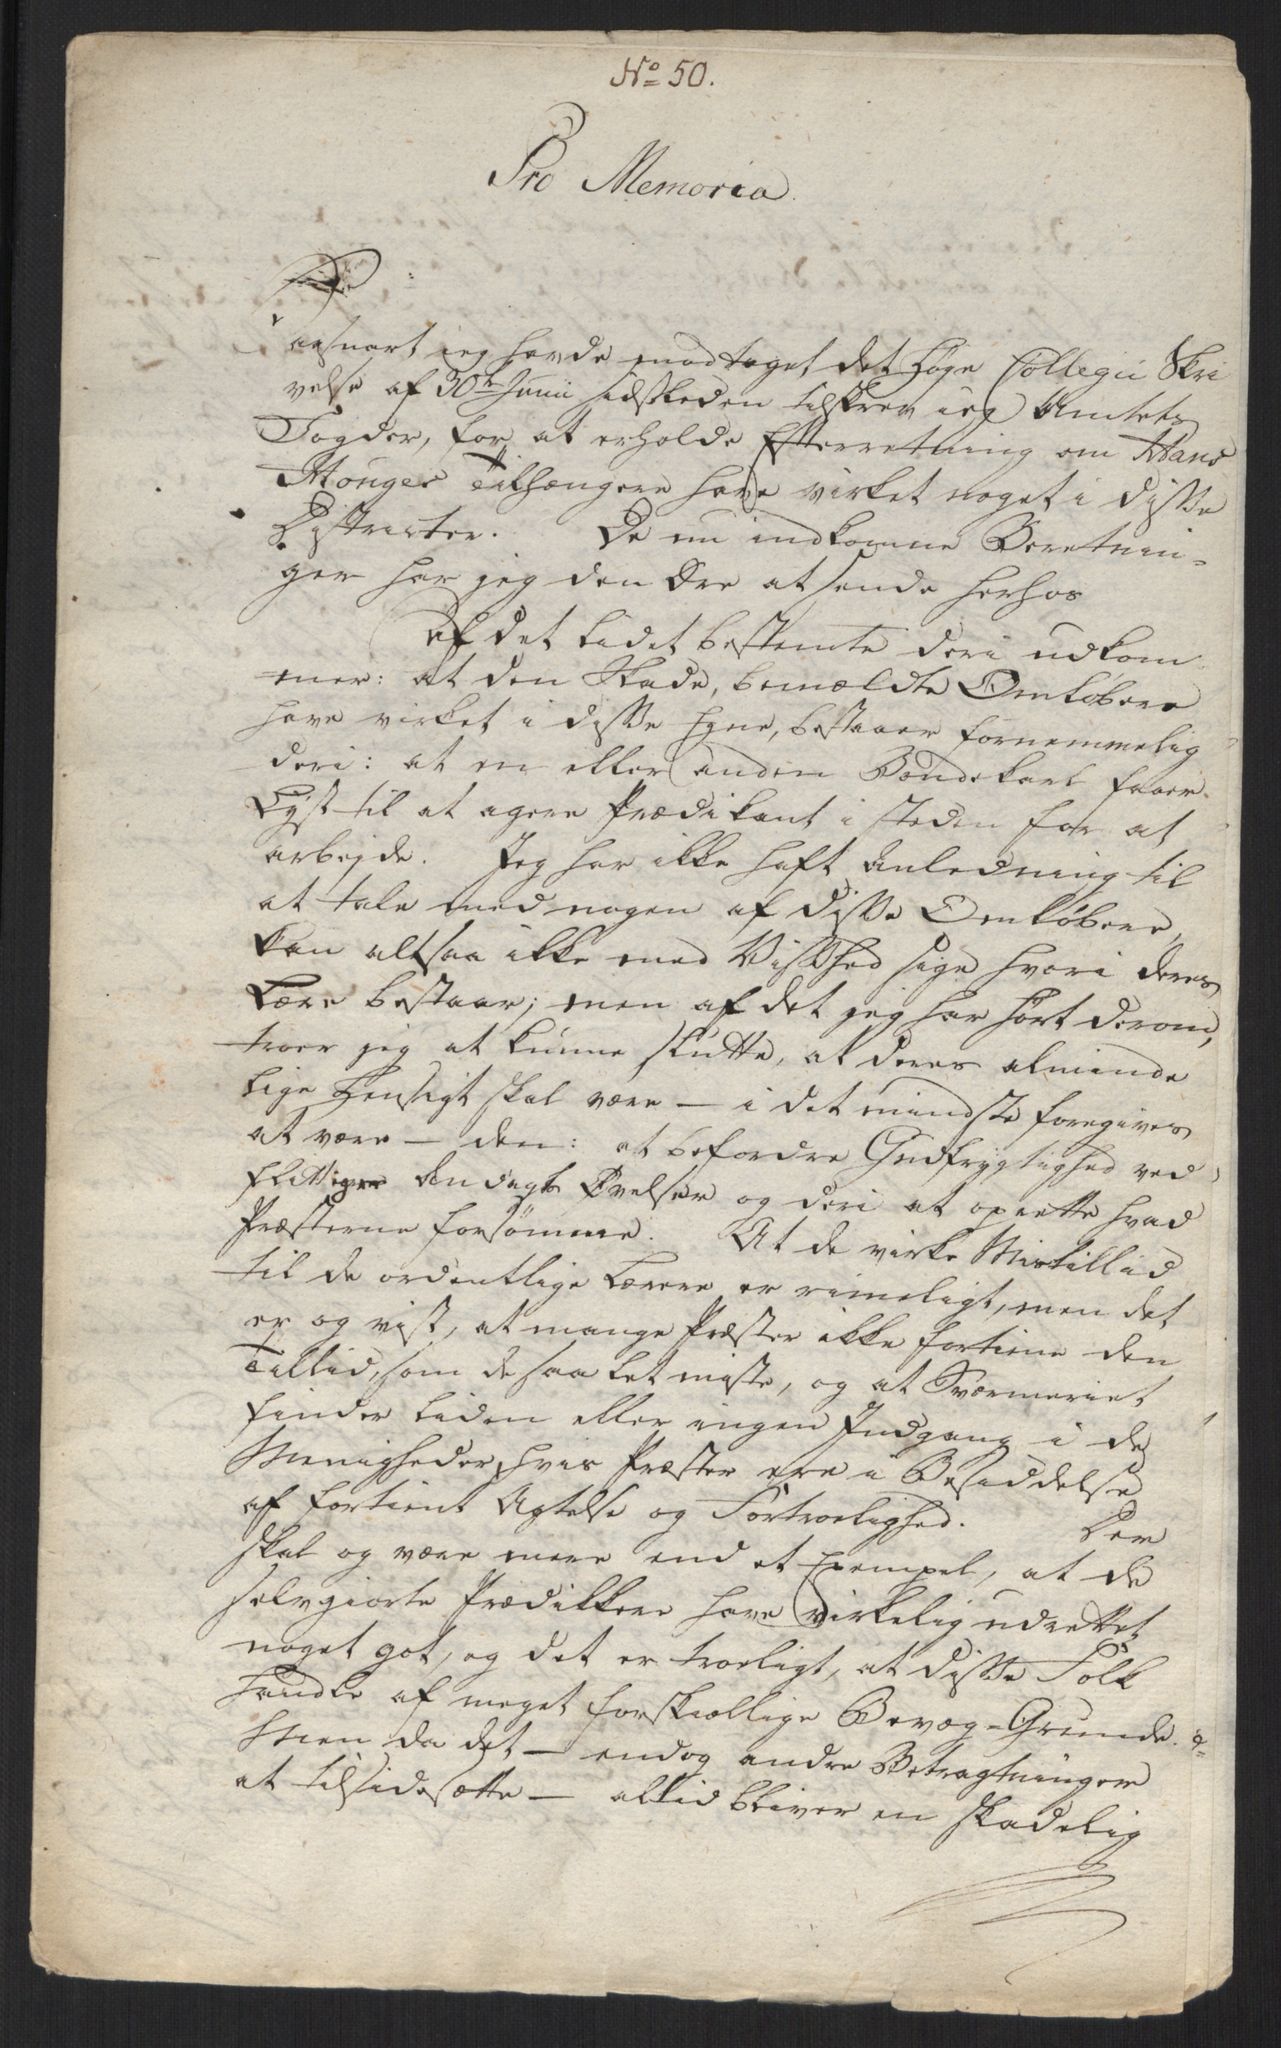 No 50.
Pro Memoria
Saasnart ieg havde modtaget det høye Collegii Skri
velse af 30te Junii sidstleden tilskrev ieg Amtets
Fogder, for at erholde Efterretning om Hans
Houges Tilhængere have virket noget i disse
Districter. De nu indkomne Beretnin-
ger har jeg den Ære at sende herhos
Af det lidet bestemte deri udkom
mer: at den Skade, bemældte Omløbere
have virket i disse Egne, bestaaer fornemmelig
deri: at en eller anden Bondekarl faaer
Lyst til at agere Prædikant i steden for at
arbejde. Jeg har ikke haft Anledning til
at tale med nogen af disse Omløbere,
kan altsaa ikke med Vished sige hvori deres
Lære bestaar; men af det jeg har hørt derom,
troer jeg at kunne slutte, at deres alminde
lige Hensigt skal være - i det mindste foregives
at være - den: at befordre Gudfrygtighed ved
flittige Andagts Øvelser og deri at oprette hvad
Præsterne forsømme. At de virke Mistillid
til de ordentlige Lærere er rimeligt, men det
er og vist, at mange Præster ikke fortiene den
Tillid, som de saa let miste, og at Sværmeriet
finder liden eller ingen Indgang i de
Menigheder, hvis Præster ere i Besiddelse
af fortient Agtelse og Fortroelighed. Der
skal og være mere end et Exempel, at de
selvgiorte Prædikkere have virkelig udrettet
noget got, og det er troeligt, at disse Folk
handle af meget forskiællige Bevæg-Grunde.
Men da det - endog andre Betragtninger
at tilsidesætte - altid bliver en skadelig